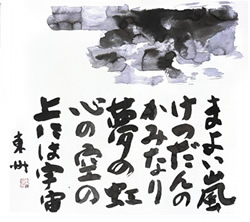 まよい嵐
けつだんの
かみなり
夢の虹
心の空の
上には宇宙
東州